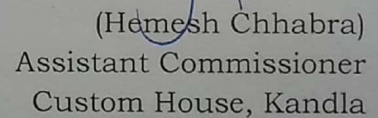 (Hemesh Chhabra)
Assistant Commissioner
Custom House, Kandla